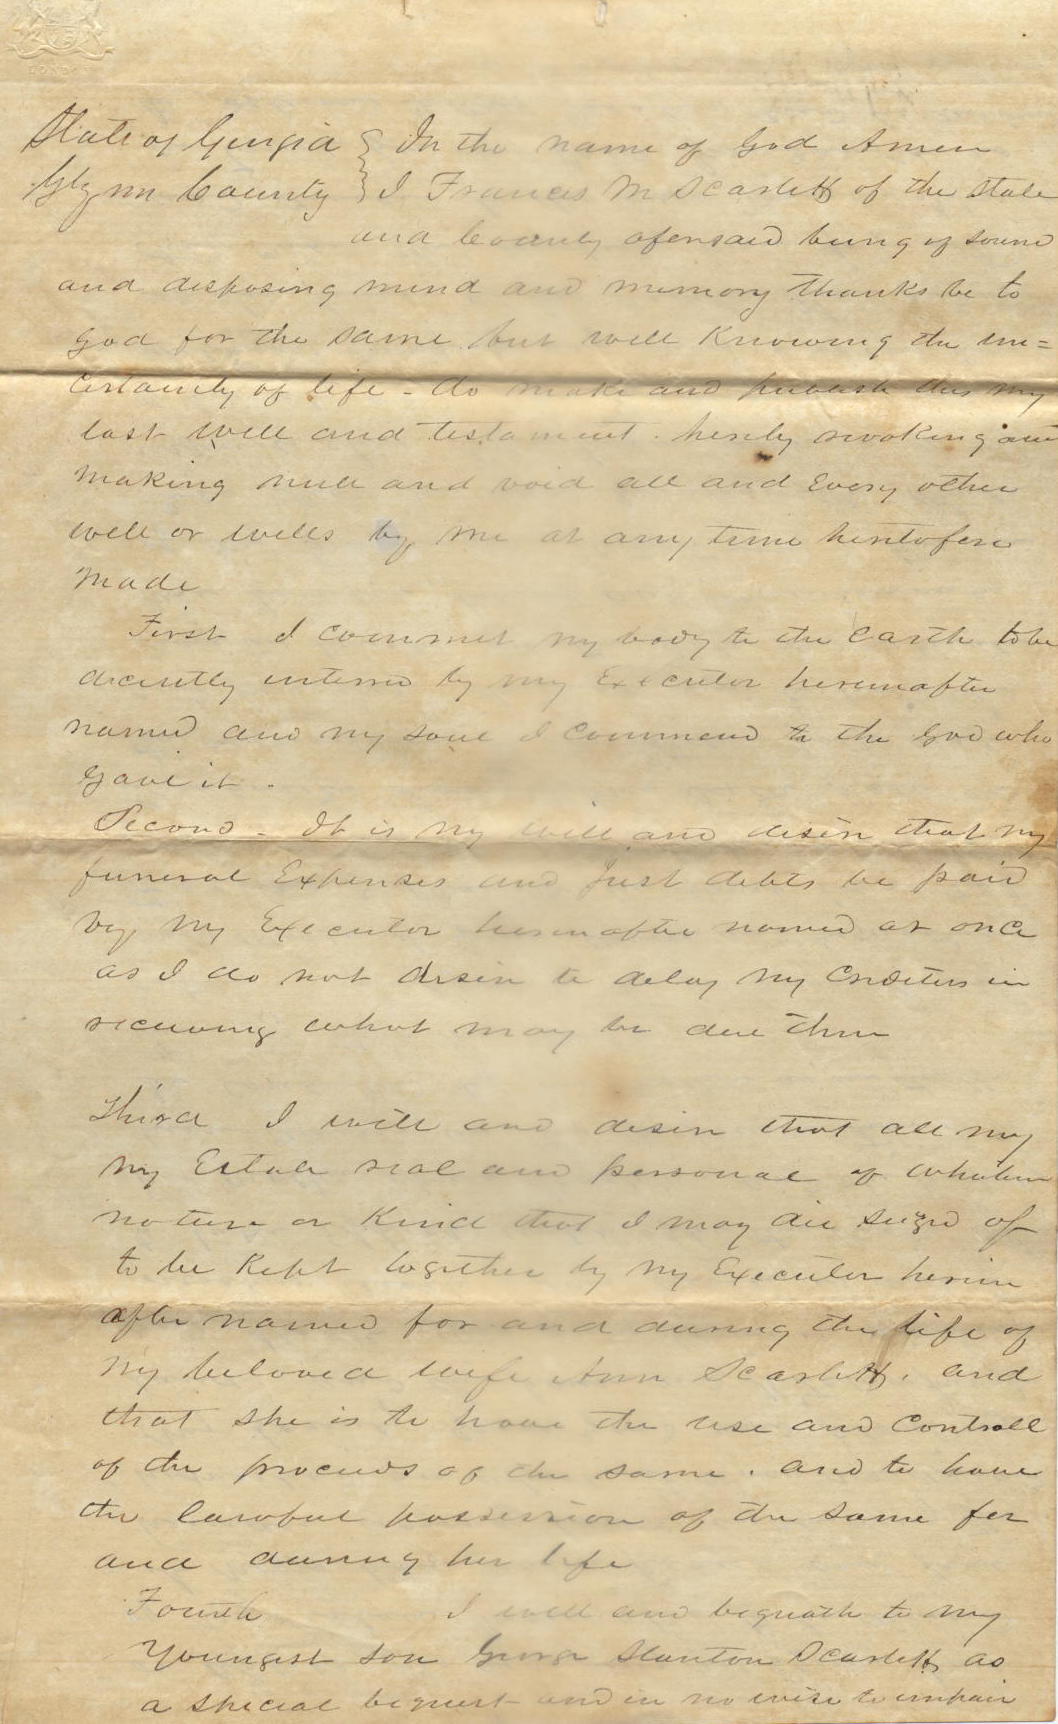 LONDON
State of Georgia } In the name of God Amen
Glynn County } I Francis M Scarlett of the State
and County aforesaid being of sound
and disposing mind and memory thanks be to
god for the same but well Knowing the un=
certainty of life - do make and publish this my
last will and testament. hereby revoking and
making null and void all and Every other
will or wills by me at any time heretofore
made
First I commit my body to the Earth to be
decently interred by my Executor hereinafter
named and my soul I Commend to the God who
gave it.
Second - It is my will and desire that my
funeral Expenses and Just debts be paid
by my Executor hereinafter named at once
as I do not desire to delay my Creditors in
receiving what may be due them
Third I will and desire that all my
my Estate real and personal of whatever
nature or Kind that I may die seized of
to be Kept together by my Executor herein
after named for and during the life of
my beloved wife Ann Scarlett. and
that she is to have the use and Controll
of the proceeds of the same. and to have
the lawful possession of the same for
and during her life
Fourth I will and bequeath to my
Youngest son George Stanton Scarlett as
a special bequest and in no wise to impair